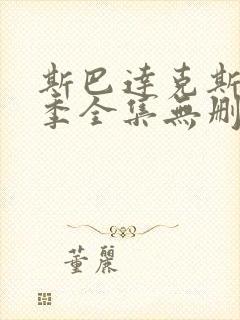 斯巴達克斯
季全集無刪
董麗